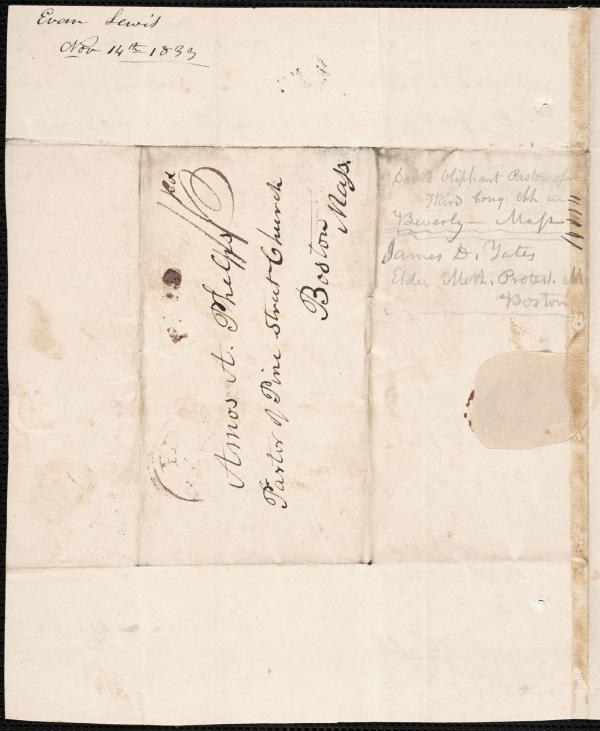 Evan Lewis
Nov 14th 1833
Amos A. Phelps
Pastor of Pine Street Church
Boston
Mass.
David Oliphant Pastor of
Third Cong. Chh in
Beverly - Mass
James D. Yates
Elder Meth. Protest.
Boston